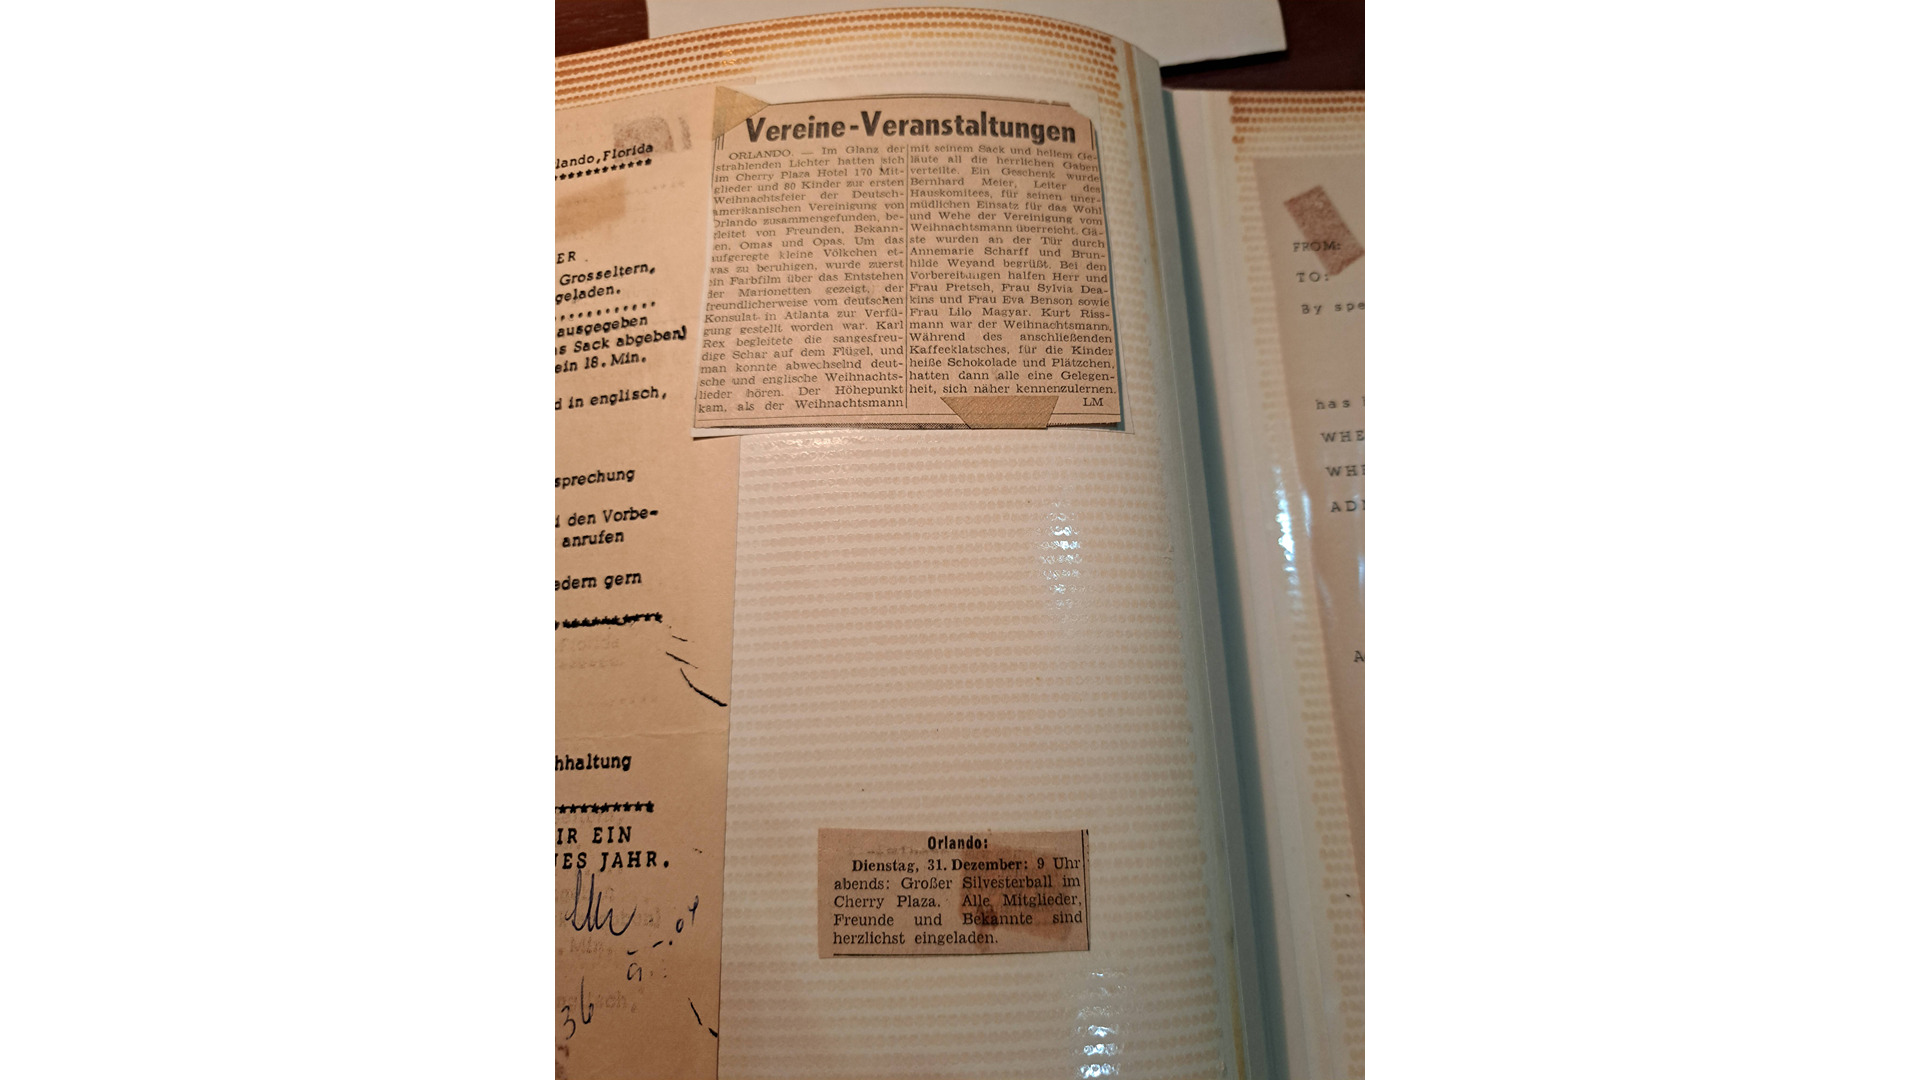 lando, Florida
ER.
Grosseltern,
geladen.
ausgegeben
s Sack abgeben)
ein 18. Min.
d in englisch,
sprechung
den Vorbe-
anrufen
edern gern
hhaltung
IR EIN
UES JAHR.
36
Vereine-Veranstaltungen
ORLANDO. — Im Glanz der
strahlenden Lichter hatten sich
im Cherry Plaza Hotel 170 Mit-
glieder und 80 Kinder zur ersten
Weihnachtsfeier der Deutsch-
amerikanischen Vereinigung von
Orlando zusammengefunden, be-
gleitet von Freunden, Bekann-
en, Omas und Opas. Um das
aufgeregte kleine Völkchen et-
was zu beruhigen, wurde zuerst
ein Farbfilm über das Entstehen
der Marionetten gezeigt, der
freundlicherweise vom deutschen
Konsulat in Atlanta zur Verfü-
gung gestellt worden war. Karl
Rex begleitete die sangesfreu-
dige Schar auf dem Flügel, und
man konnte abwechselnd deut-
sche und englische Weihnachts-
lieder hören. Der Höhepunkt
kam, als der Weihnachtsmann
mit seinem Sack und hellem Ge-
läute all die herrlichen Gaben
verteilte. Ein Geschenk wurde
Bernhard Meier, Leiter des
Hauskomitees, für seinen uner-
müdlichen Einsatz für das Wohl
und Wehe der Vereinigung vom
Weihnachtsmann überreicht. Gä-
ste wurden an der Tür durch
Annemarie Scharff und Brun-
hilde Weyand begrüßt. Bei den
Vorbereitungen halfen Herr und
Frau Pretsch, Frau Sylvia Dea-
kins und Frau Eva Benson sowie
Frau Lilo Magyar. Kurt Riss-
mann war der Weihnachtsmann.
Während des anschließenden
Kaffeeklatsches, für die Kinder
heiße Schokolade und Plätzchen,
hatten dann alle eine Gelegen-
heit, sich näher kennenzulernen.
LM
Orlando:
Dienstag, 31. Dezember: 9 Uhr
abends: Großer Silvesterball im
Cherry Plaza. Alle Mitglieder,
Freunde und Bekannte sind
herzlichst eingeladen.
FROM:
TO:
By spe
has
WHE
WHE
ADI
A